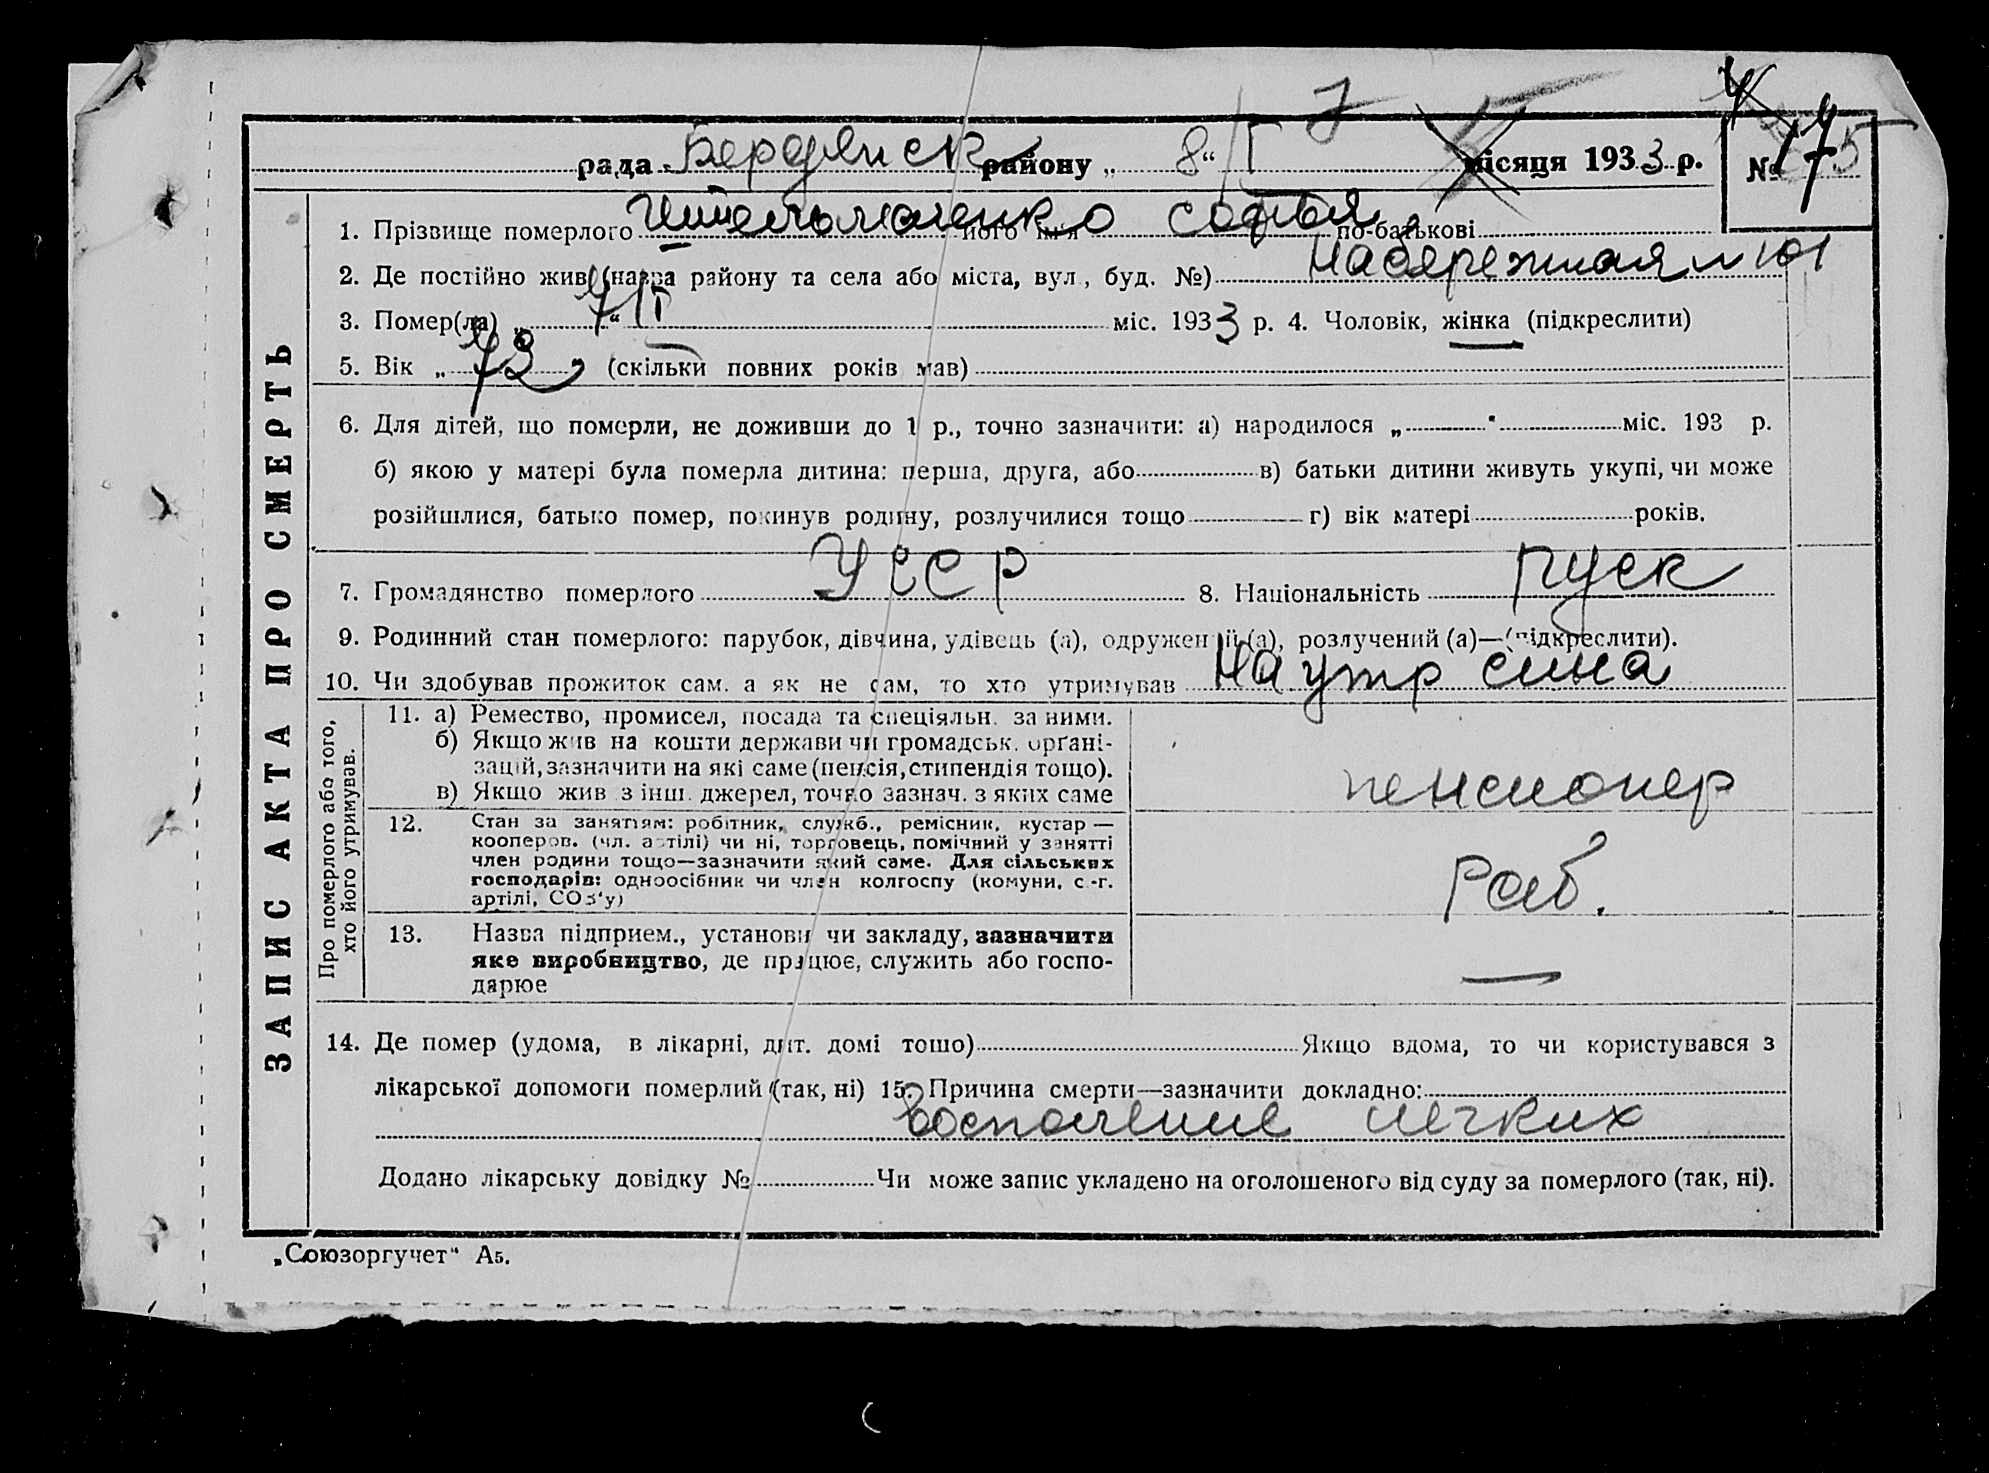 рада Бердянск району „ 8 “ I місяця 1933 р. № 175
ЗАПИС АКТА ПРО СМЕРТЬ
1. Прізвище померлого його ім'я Софья по-батькові
2. Де постійно жив (назва району та села або міста, вул., буд. №) Набережная № 101
3. Помер(ла) „ 7 “ I міс. 1933 р. 4. Чоловік, жінка (підкреслити)
5. Вік „ 73 „ (скільки повних років мав)
6. Для дітей, що померли, не доживши до 1 р., точно зазначити: а) народилося „ “ міс. 193 р.
б) якою у матері була померла дитина: перша, друга, або в) батьки дитини живуть укупі, чи може
розійшлися, батько помер, покинув родину, розлучилися тощо г) вік матері років.
7. Громадянство померлого УССР 8. Національність руск
9. Родинний стан померлого: парубок, дівчина, удівець (а), одружений (а), розлучений (а)—(підкреслити).
10. Чи здобував прожиток сам. а як не сам, то хто утримував На утр сина
Про померлого або того, хто його утримував.
11. а) Ремество, промисел, посада та спеціяльн. за ними.
б) Якщо жив на кошти держави чи громадськ. органі-
зацій, зазначити на які саме (пенсія, стипендія тощо).
в) Якщо жив з інш. джерел, точно зазнач. з яких саме
пенсионер
12. Стан за заняттям: робітник, служб., ремісник, кустар —
кооперов. (чл. артілі) чи ні, торговець, помічний у занятті
член родини тощо—зазначити який саме. Для сільських
господарів: одноосібник чи член колгоспу (комуни, с.-г.
артілі, СОЗ'у)
Раб.
13. Назва підприєм., установи чи закладу, зазначити
яке виробництво, де працює, служить або госпо-
дарює
—
14. Де помер (удома, в лікарні, дит. домі тошо) Якщо вдома, то чи користувався з
лікарської допомоги померлий (так, ні) 15. Причина смерти—зазначити докладно:
воспаление легких
Додано лікарську довідку № Чи може запис укладено на оголошеного від суду за померлого (так, ні).
„Союзоргучет“ А5.